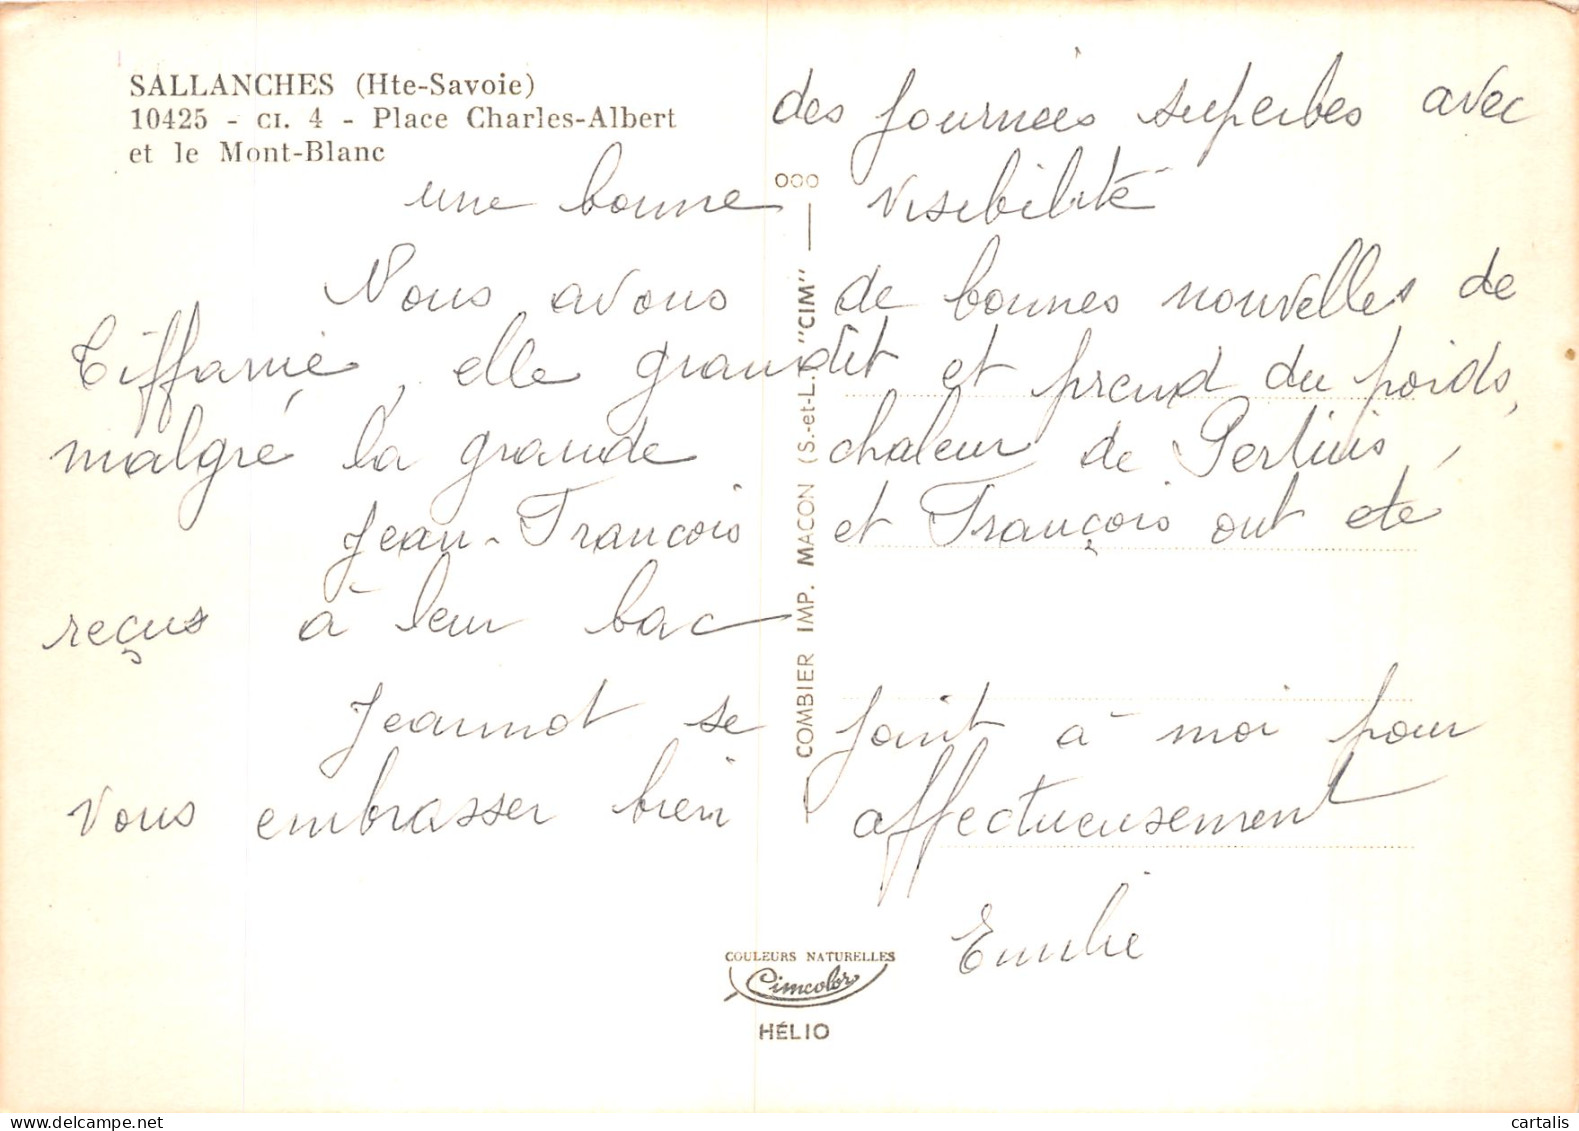 SALLANCHES (Hte-Savoie)
10425 - CI. 4 - Place Charles-Albert
et le Mont-Blanc
des journées superbes avec
une bonne visibilité
Nous avons de bonnes nouvelles de
Tiffanie, elle grandit et prend du poids,
malgré la grande chaleur de Pertuis,
Jean-Francois et François ont été
reçus à leur bac
Jeannot se joint à moi pour
vous embrasser bien affectueusement
Emilie
COMBIER IMP. MACON (S.-et-L.) "CIM"
COULEURS NATURELLES
Cimcolor
HÉLIO
cartalis